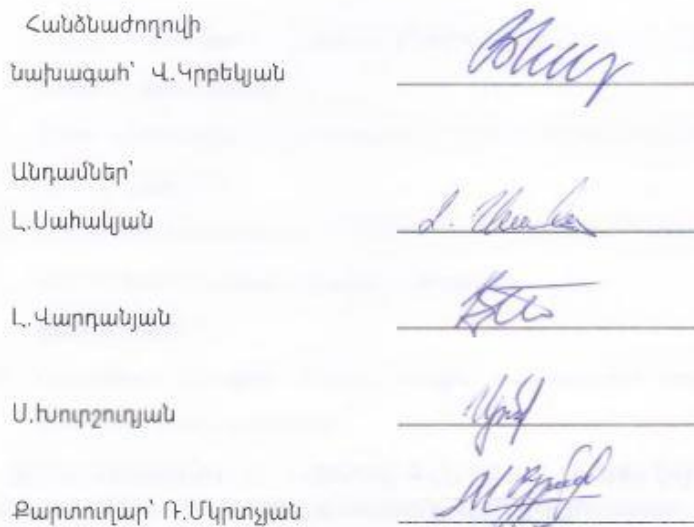 Հանձնաժողովի
նախագահ՝ Վ.Կրբեկյան
Անդամներ՝
Լ.Սահակյան
Լ.Վարդանյան
Ս.Խուրշուդյան
Քարտուղար՝ Ռ.Մկրտչյան